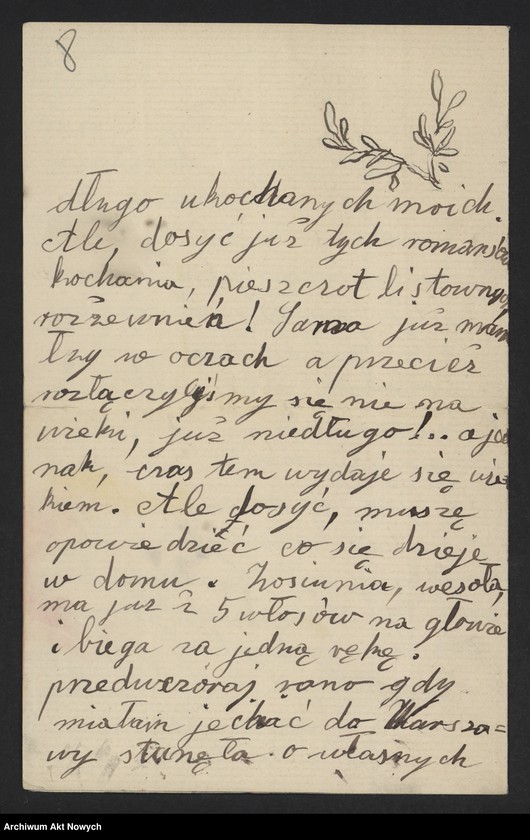 8
długo ukochanych moich.
Ale, dosyć już tych romansów
kochania, pieszczot listownych
rozrzewnień! Sama już mam
łzy w oczach a przecież
rozłączyłyśmy się nie na
wieki, już niedługo!.. a jed
nak, czas tem wydaje się wie-
kiem. Ale dosyć, muszę
opowiedzieć co się dzieje
w domu. Zosiunia, wesoła,
ma już z 5 włosów na głowie
i biega za jedną rękę.
przedwczoraj rano gdy
miałam jechać do Warsza=
wy stanęła o własnych
Archiwum Akt Nowych